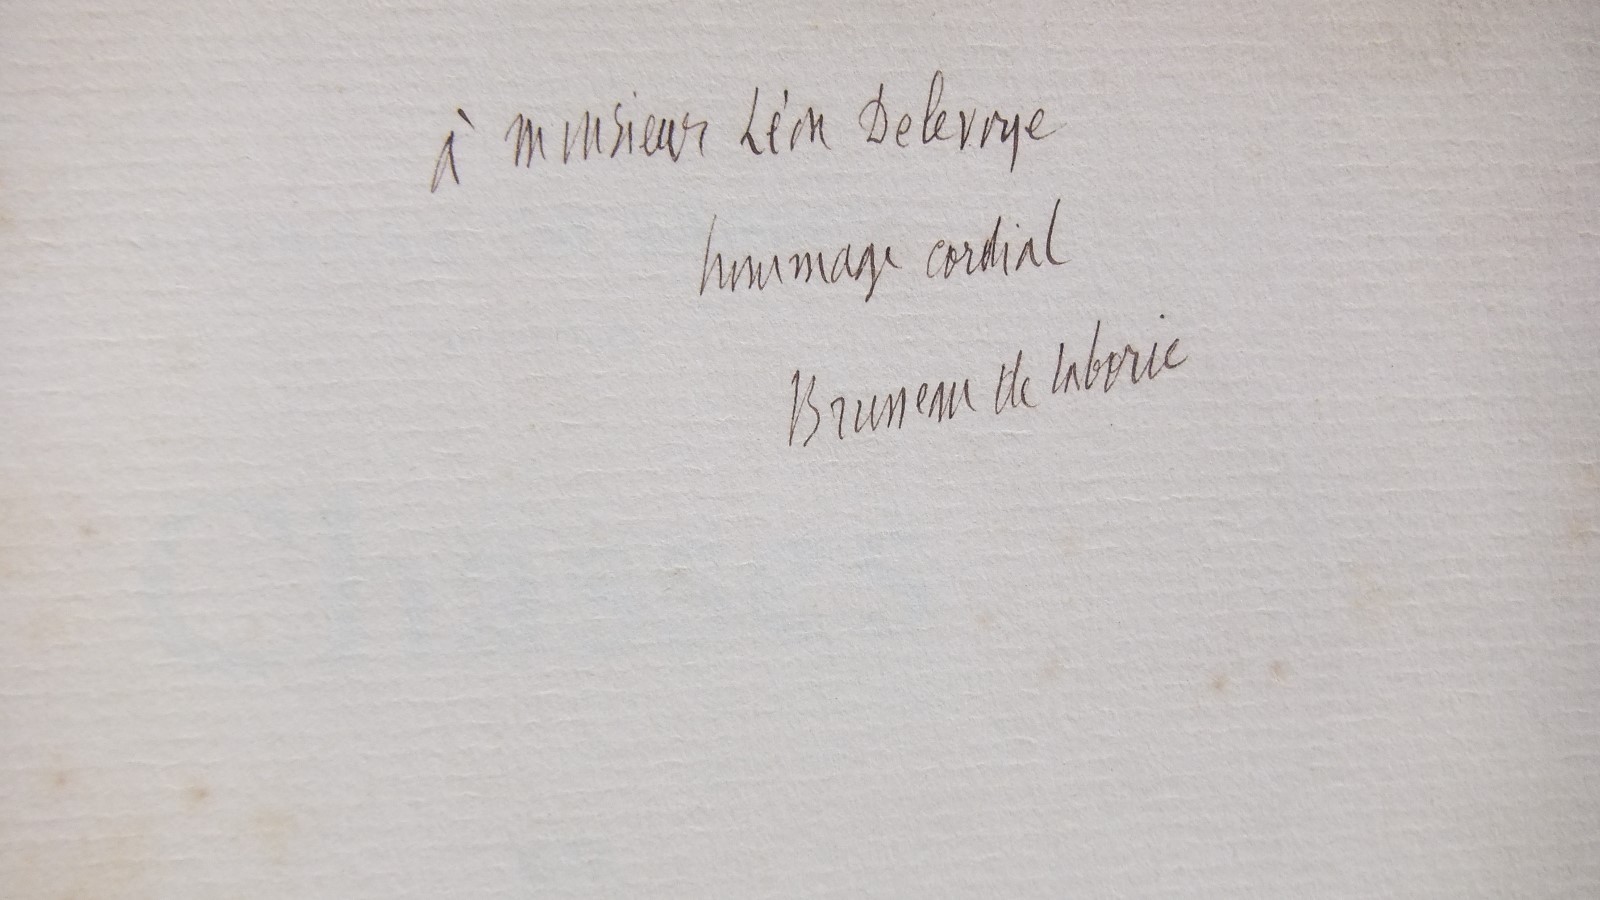 à monsieur Léon Delevoye
hommage cordial
Bruneau de Laborie